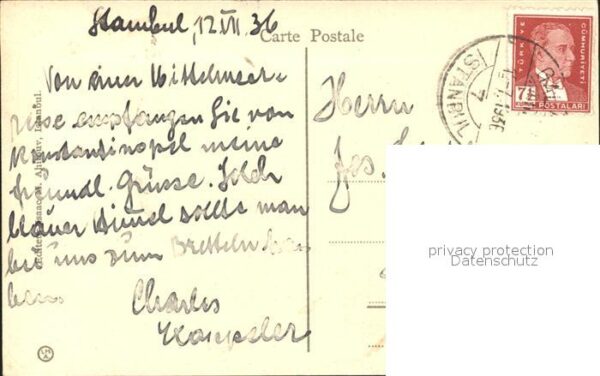 Istambul, 12 VII 36
Carte Postale
Von einer Mittelmeer-
reise empfangen Sie von
Konstantinopel meine
freundl. Grüsse. Solch
blauer Himmel sollte man
bei uns zum Bretteln ha-
ben.
Charles
Herrn
Jos.
TÜRKİYE
CUMHURİYETİ
7½
POSTALARI
ISTANBUL
7
1936
Isaac M. Ahitouv, Istanbul.
privacy protection
Datenschutz